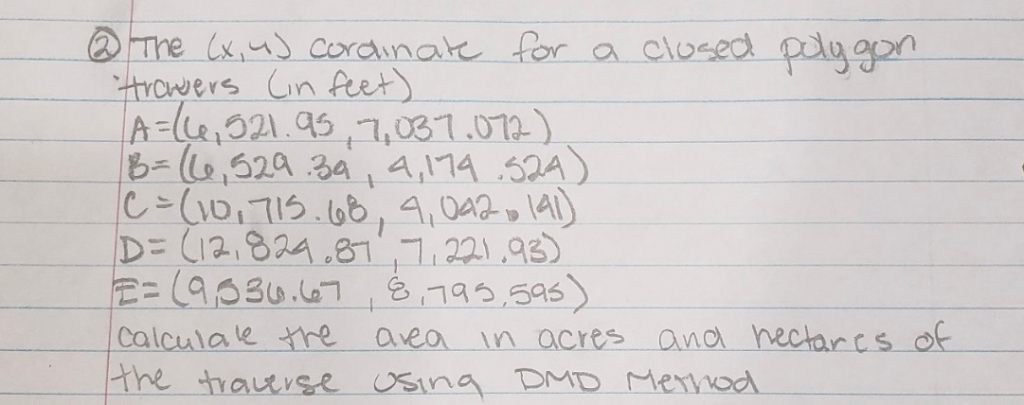 ② The (x,y) cordinate for a closed polygon
travers (in feet)
A=(6,521.95,7,037.072)
B=(6,529.39, 4,174.524)
C=(10,715.68, 4,042.141)
D=(12,824.87,7,221.93)
E=(9,536.67,8,795.595)
calculate the area in acres and hectares of
the traverse using DMD Method